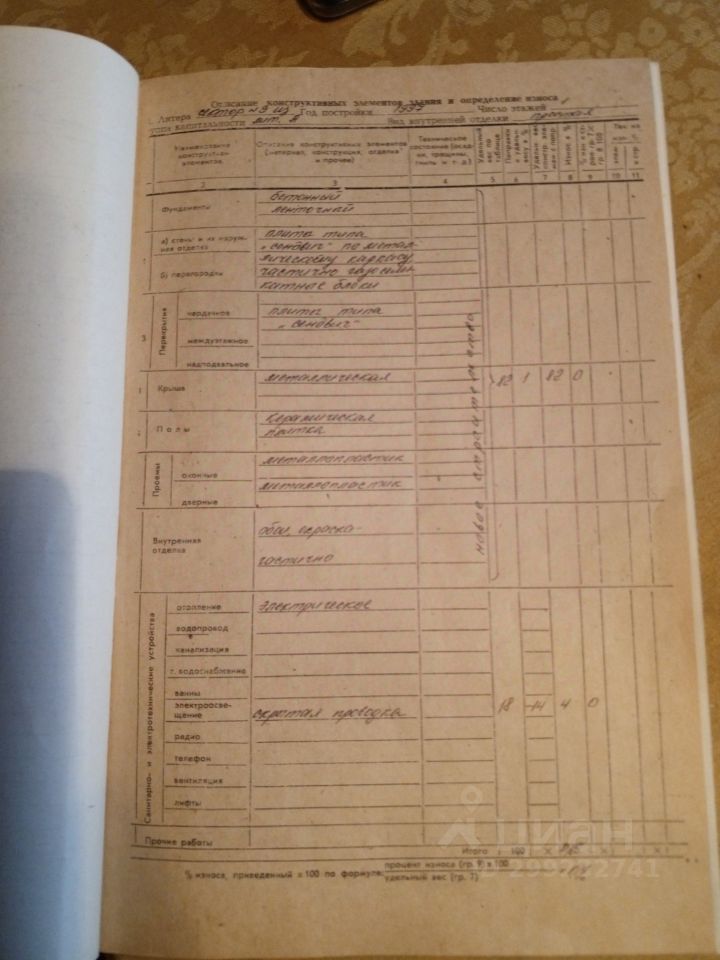 Описание конструктивных элементов здания и определение износа
Литера сектор №3 из Год постройки 1997 Число этажей
группа капитальности лит. А Вид внутренней отделки простая
Наименование конструктив. элементов
Описание конструктивных элементов (материал, конструкция, отделка и прочее)
Техническое состояние (осадки, трещины, гниль и т. д.)
Удельный вес по таблице
Износ в %
2 3 4 5 6 7 8 9 10 11
Фундаменты
бетонный
ленточный
а) стены и их наружная отделка
плита типа
„сендвич" по метал-
лическому каркасу
б) перегородки
частично газосили
катные блоки
3
Перекрытия
чердачное
плита типа
„сендвич"
междуэтажное
надподвальное
Крыша
металлическая
82 1 82 0
Полы
керамическая
плитка
Проемы
оконные
металлопластик
дверные
металлопластик
новое строительство
Внутренняя отделка
обои, окраска-
частично
Санитарно- и электротехнические устройства
отопление
электрическое
водопровод
канализация
г. водоснабжение
ванны
электроосвещение
скрытая проводка
18 -14 4 0
радио
телефон
вентиляция
лифты
Прочие работы
Итого 100 х х х
% износа, приведенный к 100 по формуле: процент износа (гр. 9) х 100
удельный вес (гр. 7)
циан